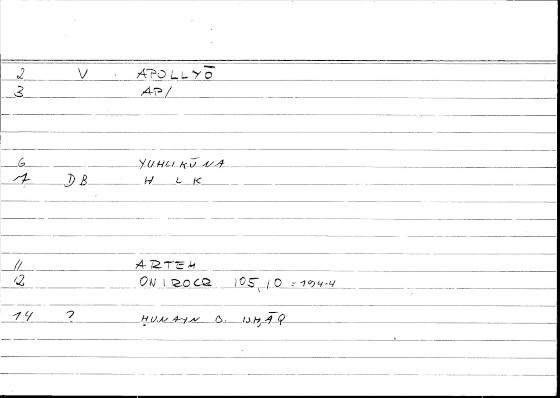 2 V APOLLYŌ
3 AP/
6 YUHLIKŪNA
7 DB H L K
11 ARTEM
12 ONIROCR 105,10 = 194.4
14 ? ḤUNAYN B. ISḤĀQ